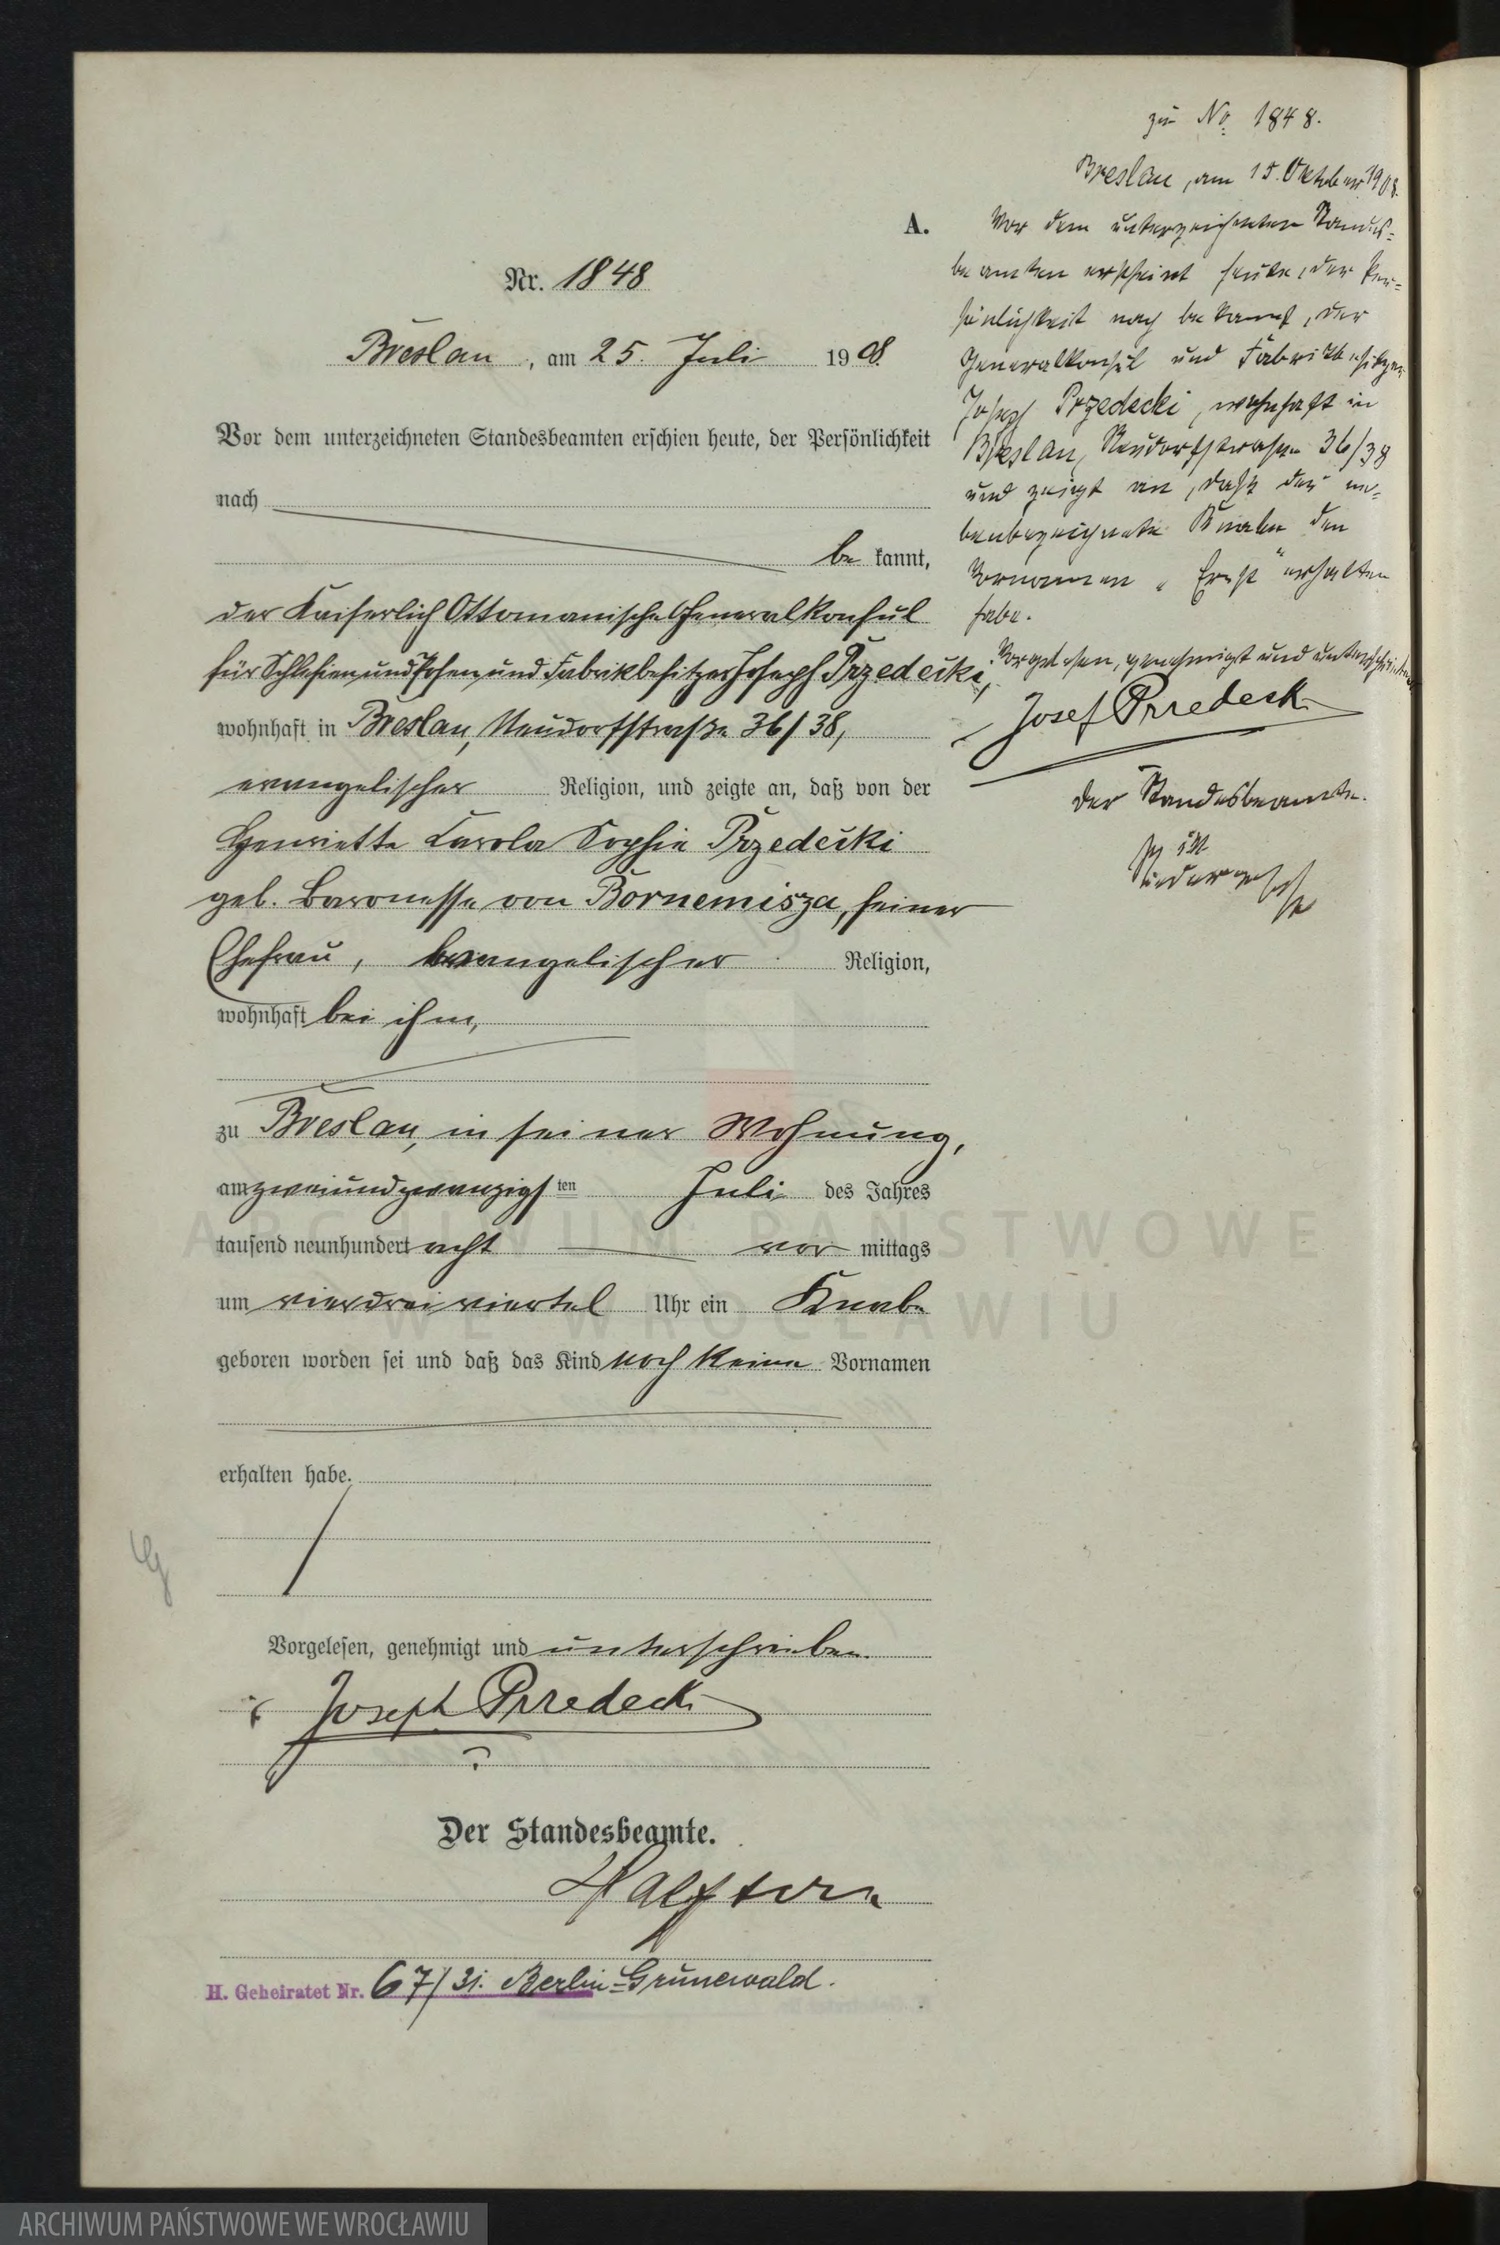 A.
Nr. 1848
Breslau, am 25. Juli 1908.
Vor dem unterzeichneten Standesbeamten erschien heute, der Persönlichkeit
nach
be kannt,
der Kaiserlich Ottomanische Generalkonsul
für Schlesien und Posen und Fabrikbesitzer Joseph Przedecki,
wohnhaft in Breslau, Neudorfstraße 36/38,
evangelischer Religion, und zeigte an, daß von der
Henriette Carola Sophie Przedecki
geb. Baronesse von Bornemisza, seiner
Ehefrau, evangelischer Religion,
wohnhaft bei ihm,
zu Breslau, in seiner Wohnung,
am zweiundzwanzigsten Juli des Jahres
tausend neunhundert acht vor mittags
um vierdreiviertel Uhr ein Knabe
geboren worden sei und daß das Kind noch keine Vornamen
erhalten habe.
Vorgelesen, genehmigt und unterschrieben.
Joseph Przedecki
Der Standesbeamte.
H. Geheiratet Nr. 67/31. Berlin-Grunewald.
zu No 1848.
Breslau, am 15. Oktober 1908.
Vor dem unterzeichneten Standes-
beamten erscheint heute, der Per-
sönlichkeit nach bekannt, der
Generalkonsul und Fabrikbesitzer
Joseph Przedecki, wohnhaft in
Breslau, Neudorfstrasse 36/38
und zeigt an, dass der ne-
benbezeichnete Knabe den
Vornamen „Ernst" erhalten
habe.
Vorgelesen, genehmigt und unterschrieben
Josef Przedecki
Der Standesbeamte.
ARCHIWUM PAŃSTWOWE
WE WROCŁAWIU
ARCHIWUM PAŃSTWOWE WE WROCŁAWIU